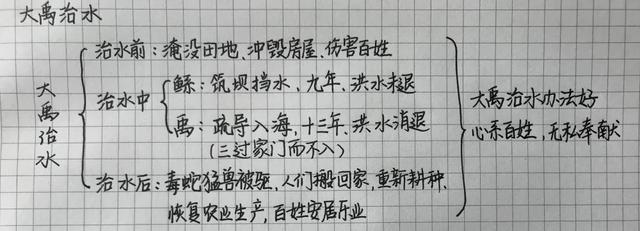 大禹治水
大禹治水
治水前：淹没田地、冲毁房屋、伤害百姓
治水中
鲧：筑坝挡水，九年，洪水未退
禹：疏导入海，十三年，洪水消退
（三过家门而不入）
治水后：毒蛇猛兽被驱，人们搬回家，重新耕种，
恢复农业生产，百姓安居乐业
大禹治水办法好
心系百姓，无私奉献